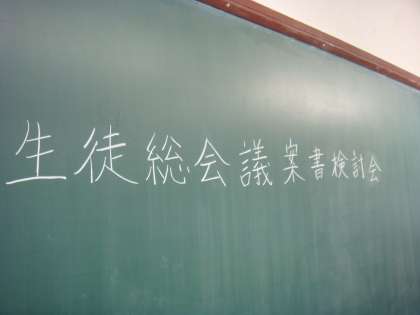 生徒総会議案書検討会